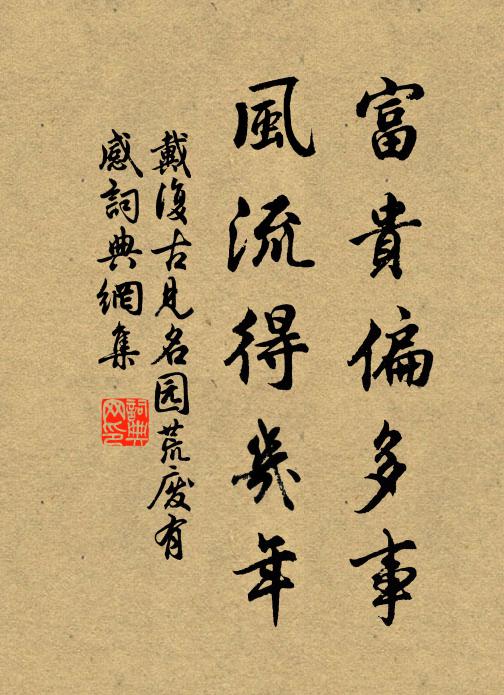 富貴偏多事
風流得幾年
戴復古見名园荒废有
感詞典網集
詞典
网印